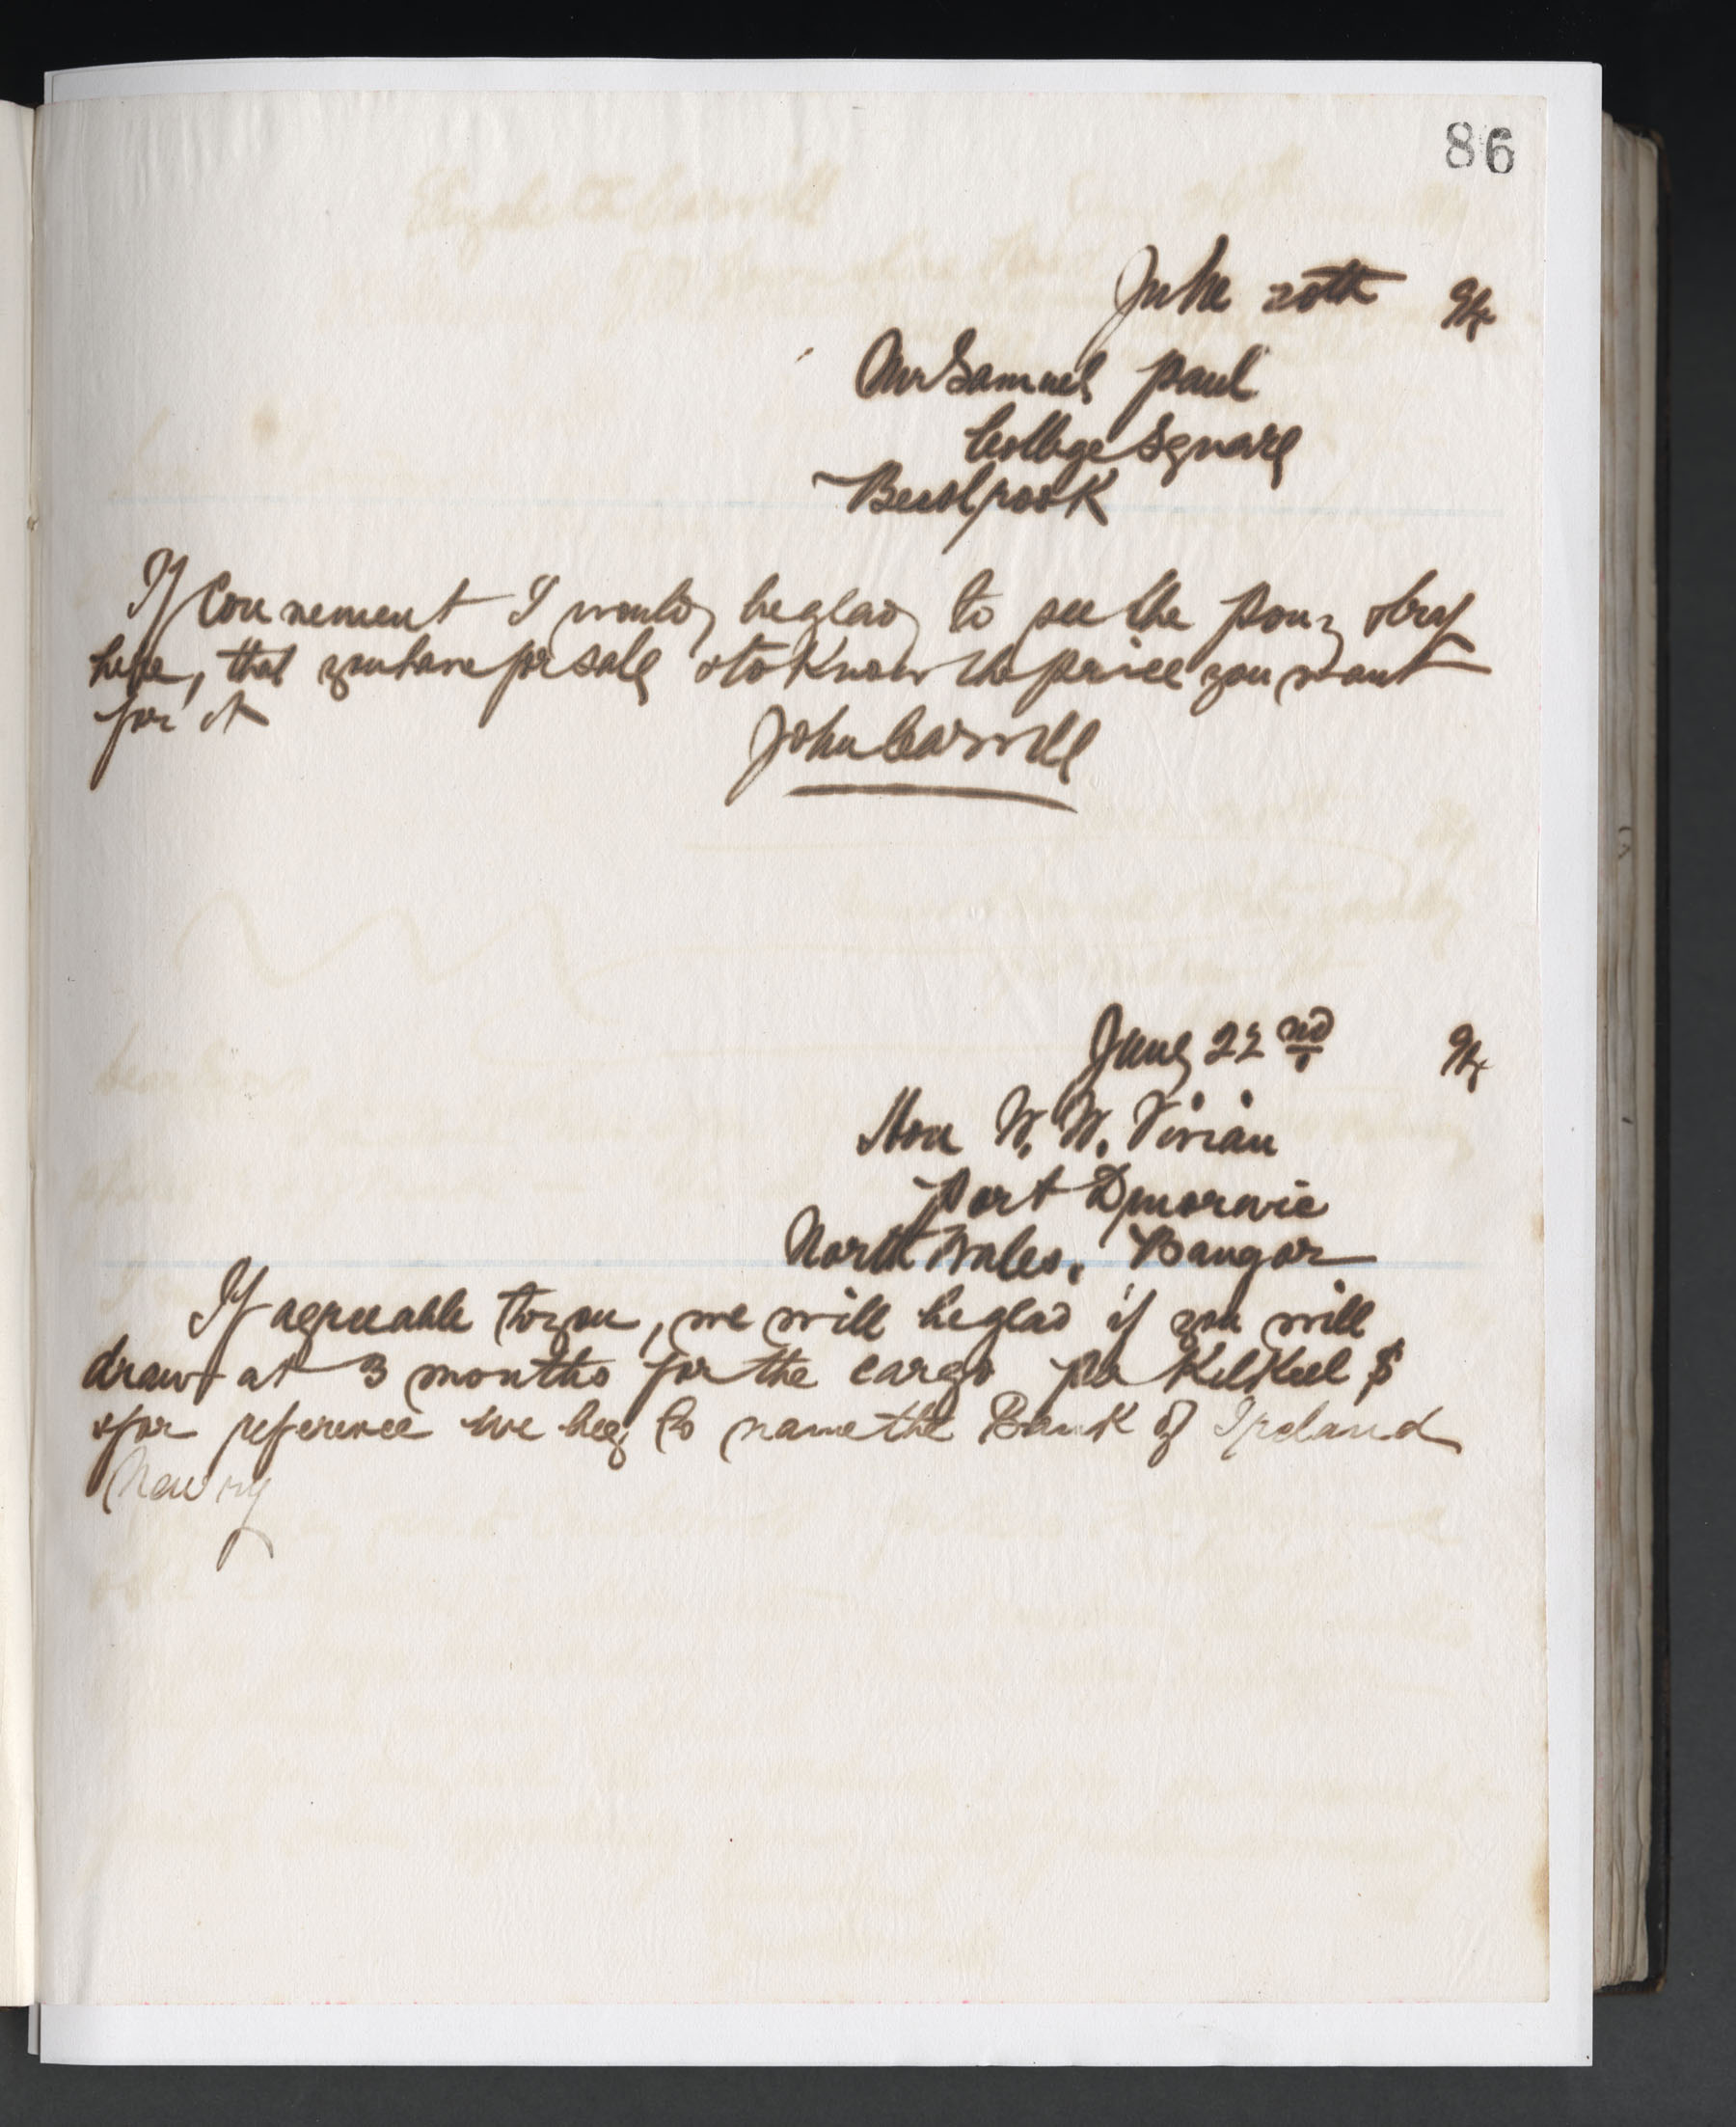 86
June 20th 94
Mr Samuel Paul
College Square
Bessbrook
If Convenient I would be glad to see the pony & try
here, that you have for sale & to know the price you want
for it
John Carvill
June 22nd 94
Hon W. W. Vivian
Port Dinorwic
North Wales, Bangor
If agreeable to you, we will be glad if you will
draw at 3 months for the cargo per Kilkeel $
& for reference we beg to name the Bank of Ireland
Newry